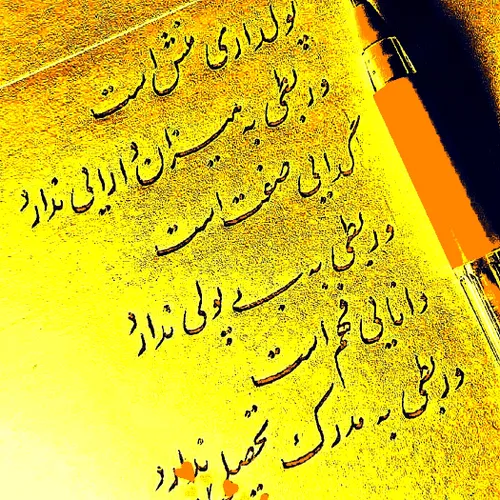 پولداری منش است
و ربطی به میزان دارایی ندارد
گدایی صفت است
و ربطی به بی پولی ندارد
دانایی فهم است
و ربطی به مدرک تحصیلی ندارد